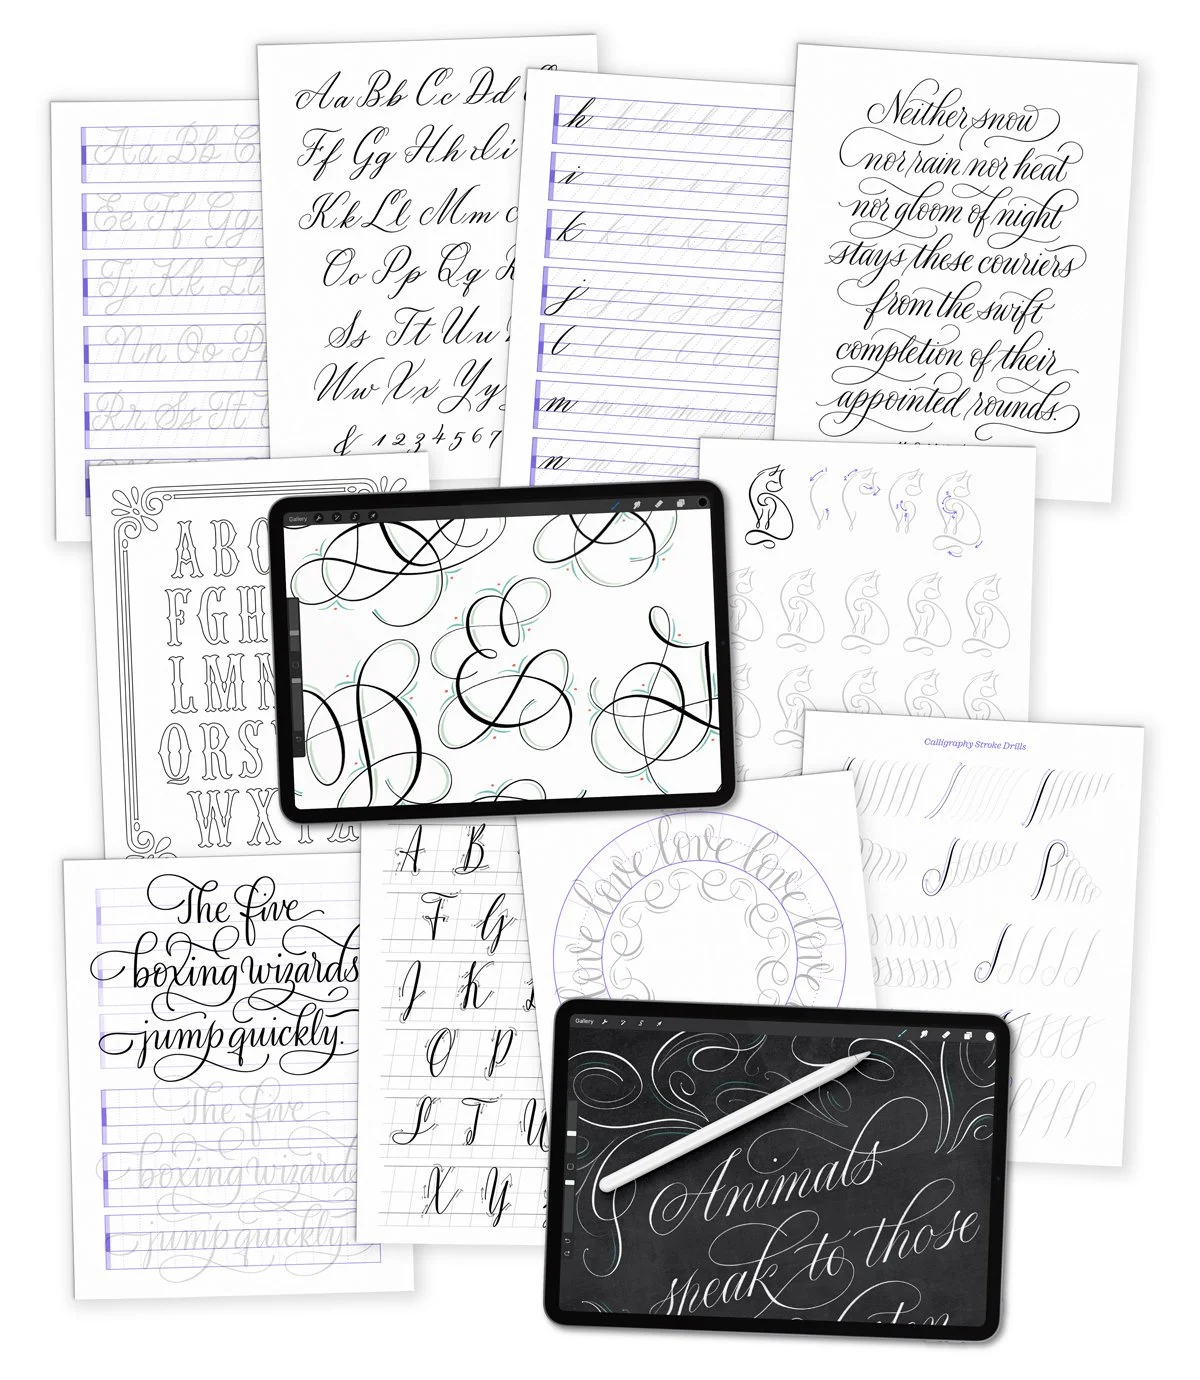 Aa Bb C
Ee Ff Gg
Jj Kk Ll
Nn Oo Pp
Rr Ss Tt
Aa Bb Cc Dd
Ff Gg Hh Ii
Kk Ll Mm
Oo Pp Qq R
Ss Tt Uu
Ww Xx Yy
& 1 2 3 4 5 6 7
h
i
k
j
l
m
n
Neither snow
nor rain nor heat
nor gloom of night
stays these couriers
from the swift
completion of their
appointed rounds.
A B C
F G H
L M N
Q R S
W X Y Z
Gallery
&
Calligraphy Stroke Drills
The five
boxing wizards
jump quickly.
The five
boxing wizards
jump quickly.
A B
F G
J K L
O P
S T U
X Y
love love love love love love
Gallery
Animals
speak to those